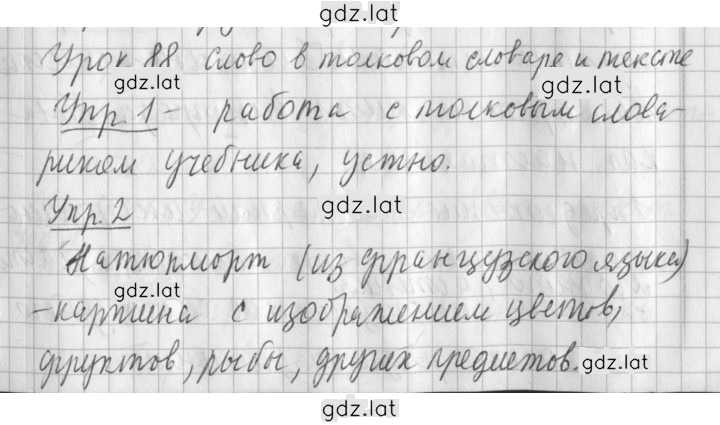 gdz.lat
Урок 88 слово в толковом словаре и тексте
gdz.lat
Упр. 1 - работа с толковым слова-
риком учебника, устно.
gdz.lat
Упр. 2
Натюрморт (из французского языка)
gdz.lat
-картина с изображением цветов,
фруктов, рыбы, других предметов.
gdz.lat
gdz.lat